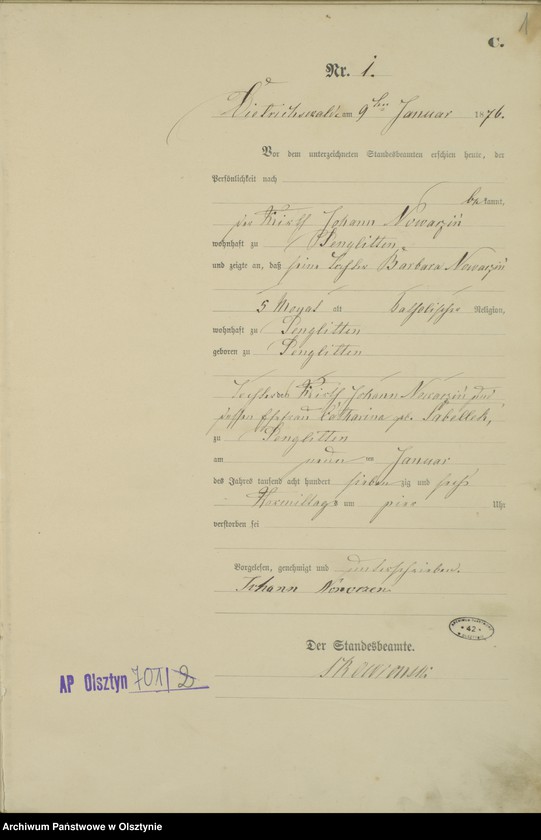 1
C.
Nr. 1.
Dietrichswalde am 9ten Januar 1876.
Vor dem unterzeichneten Standesbeamten erschien heute, der
Persönlichkeit nach
bekannt,
der Johann Nowarzin
wohnhaft zu Penglitten,
und zeigte an, daß seine Tochter Barbara Nowarzin
5 Monat alt katholischer Religion,
wohnhaft zu Penglitten
geboren zu Penglitten
Tochter des Johann Nowarzin und
dessen Ehefrau Catharina geb.
zu Penglitten
am Januar
des Jahres tausend acht hundert siebenzig und sechs
Vormittags um vier Uhr
verstorben sei
Vorgelesen, genehmigt und unterschrieben.
Johann
ARCHIWUM PAŃSTWOWE
42
W OLSZTYNIE
Der Standesbeamte.
AP Olsztyn 701/2
Archiwum Państwowe w Olsztynie